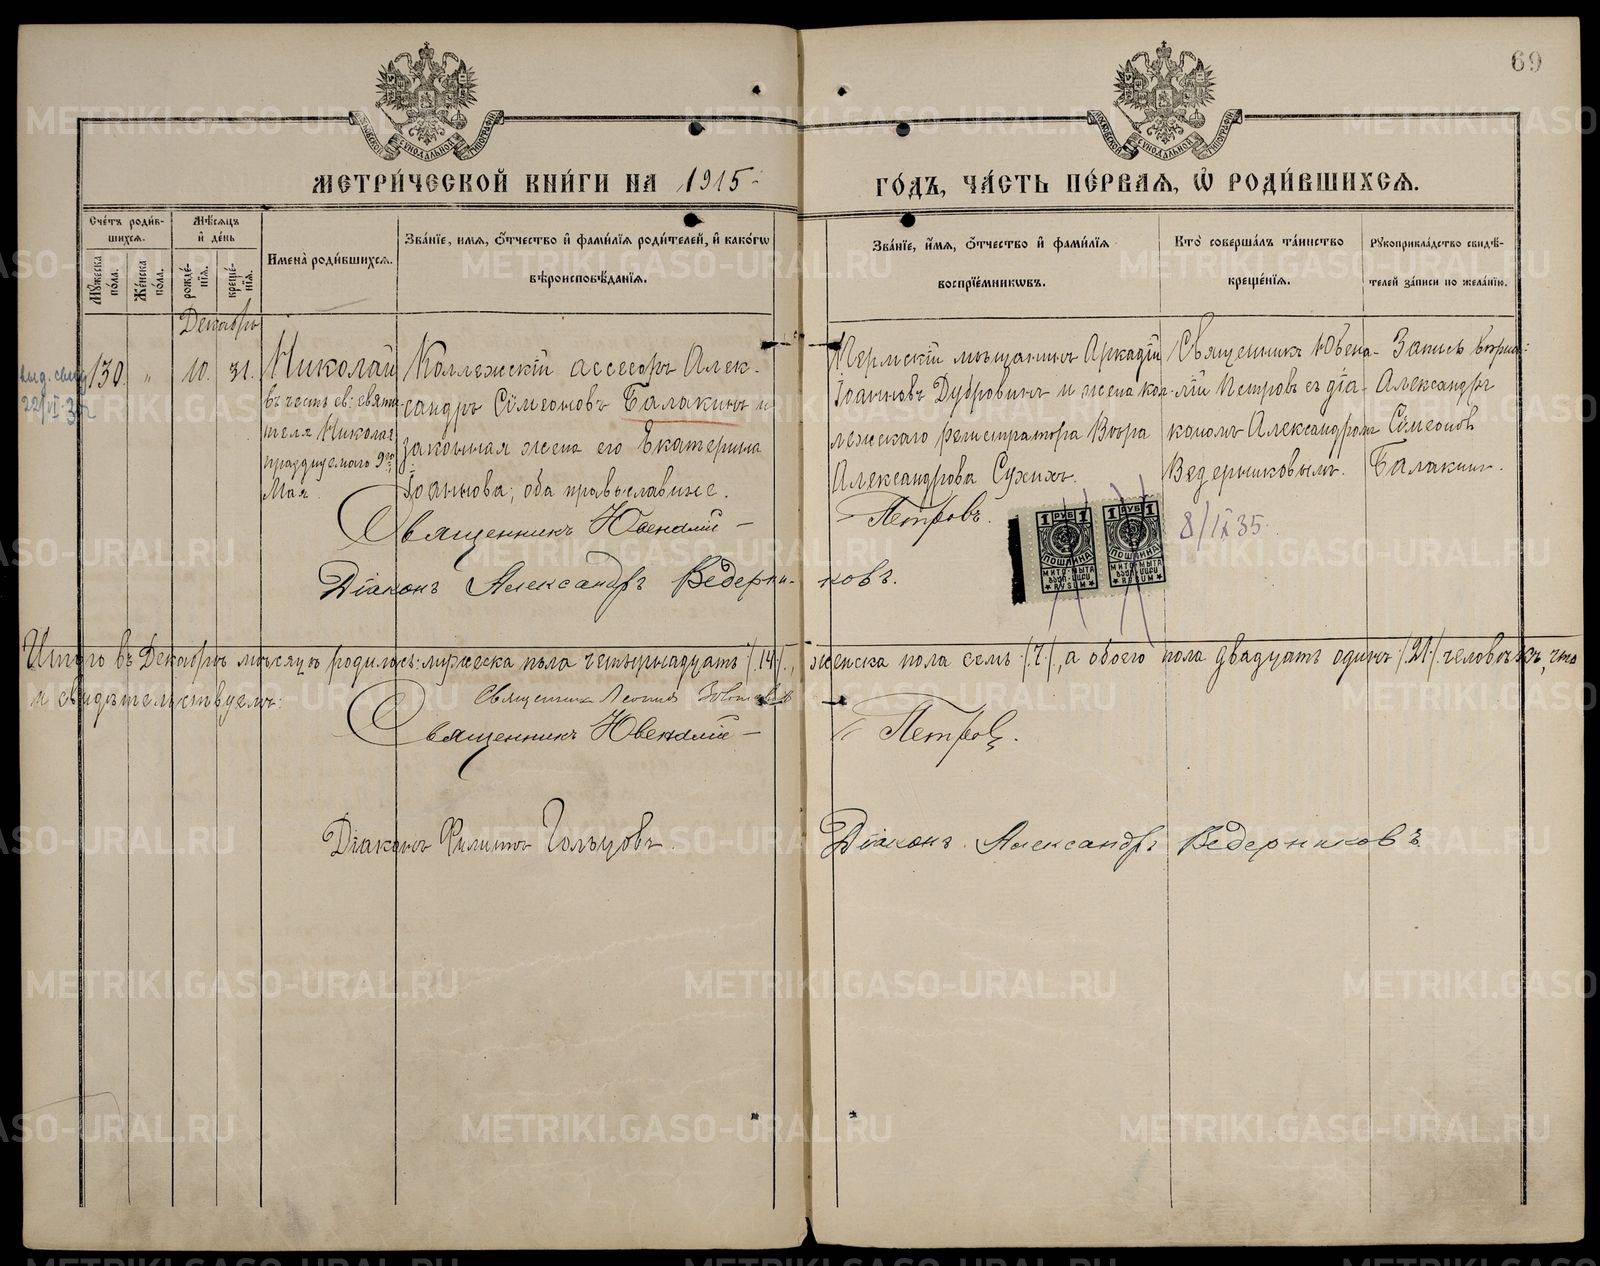 69
МЕТРИ́ЧЕСКОЙ КНИ́ГИ НА 1915
ГО́ДЪ, ЧА́СТЬ ПЕ́РВАЯ, Ѡ҆ РОДИ́ВШИХСЯ.
Сче́тъ роди́в-
шихся.
Мѣ́сяцъ
и҆ де́нь
Имена̀ роди́вшихся.
Зва́нїе, имя, ѻ҆́тчество и҆ фами́лїя роди́телей, и҆ како́гѡ
вѣроисповѣ́данїя.
Мꙋ́жеска по́ла.
Же́нска по́ла.
рожде́нїя.
креще́нїя.
Зва́нїе, и҆́мя, ѻ҆́тчество и҆ фами́лїя
воспрїе́мникѡвъ.
Кто̀ соверша́лъ та́инство
креще́нїя.
Рꙋкоприкла́дство свидѣ́-
телей за́писи по жела́нїю.
Декабрь
выд. свид
22/VI-37
130. „ 10. 31.
Николай
въ честь св. святи
теля Николая,
празднуемаго 9го
Мая.
Коллежскій ассесоръ Алек-
сандръ Сѵмеоновъ Балакинъ и
законная жена его Екатерина
Іоаннова; оба православные.
Пермскій мѣщанинъ Аркадій
Іоанновъ Дубровинъ и жена кол-
лежскаго регистратора Вѣра
Александрова Сухихъ.
Священникъ Ювена-
лій Петровъ съ діа-
кономъ Александромъ
Ведерниковымъ.
Запись вѣрна:
Александръ
Сѵмеоновъ
Балакин.
Священникъ Ювеналій Петровъ.
Діаконъ Александръ Ведерниковъ.
1 РУБ 1
ПОШЛИНА
МИТО-МЫТА
RÜSUM
1 РУБ 1
ПОШЛИНА
МИТО-МЫТА
RÜSUM
8/IX 35.
Итого въ Декабрѣ мѣсяцѣ родилось: мужеска пола четырнадцать /14/, женска пола семь /7/, а обоего пола двадцать одинъ /21/ человѣкъ, что
и свидѣтельствуемъ:
Священникъ
Священникъ Ювеналій Петровъ.
Діаконъ Филиппъ Гольцовъ.
Діаконъ Александръ Ведерниковъ
METRIKI.GASO-URAL.RU